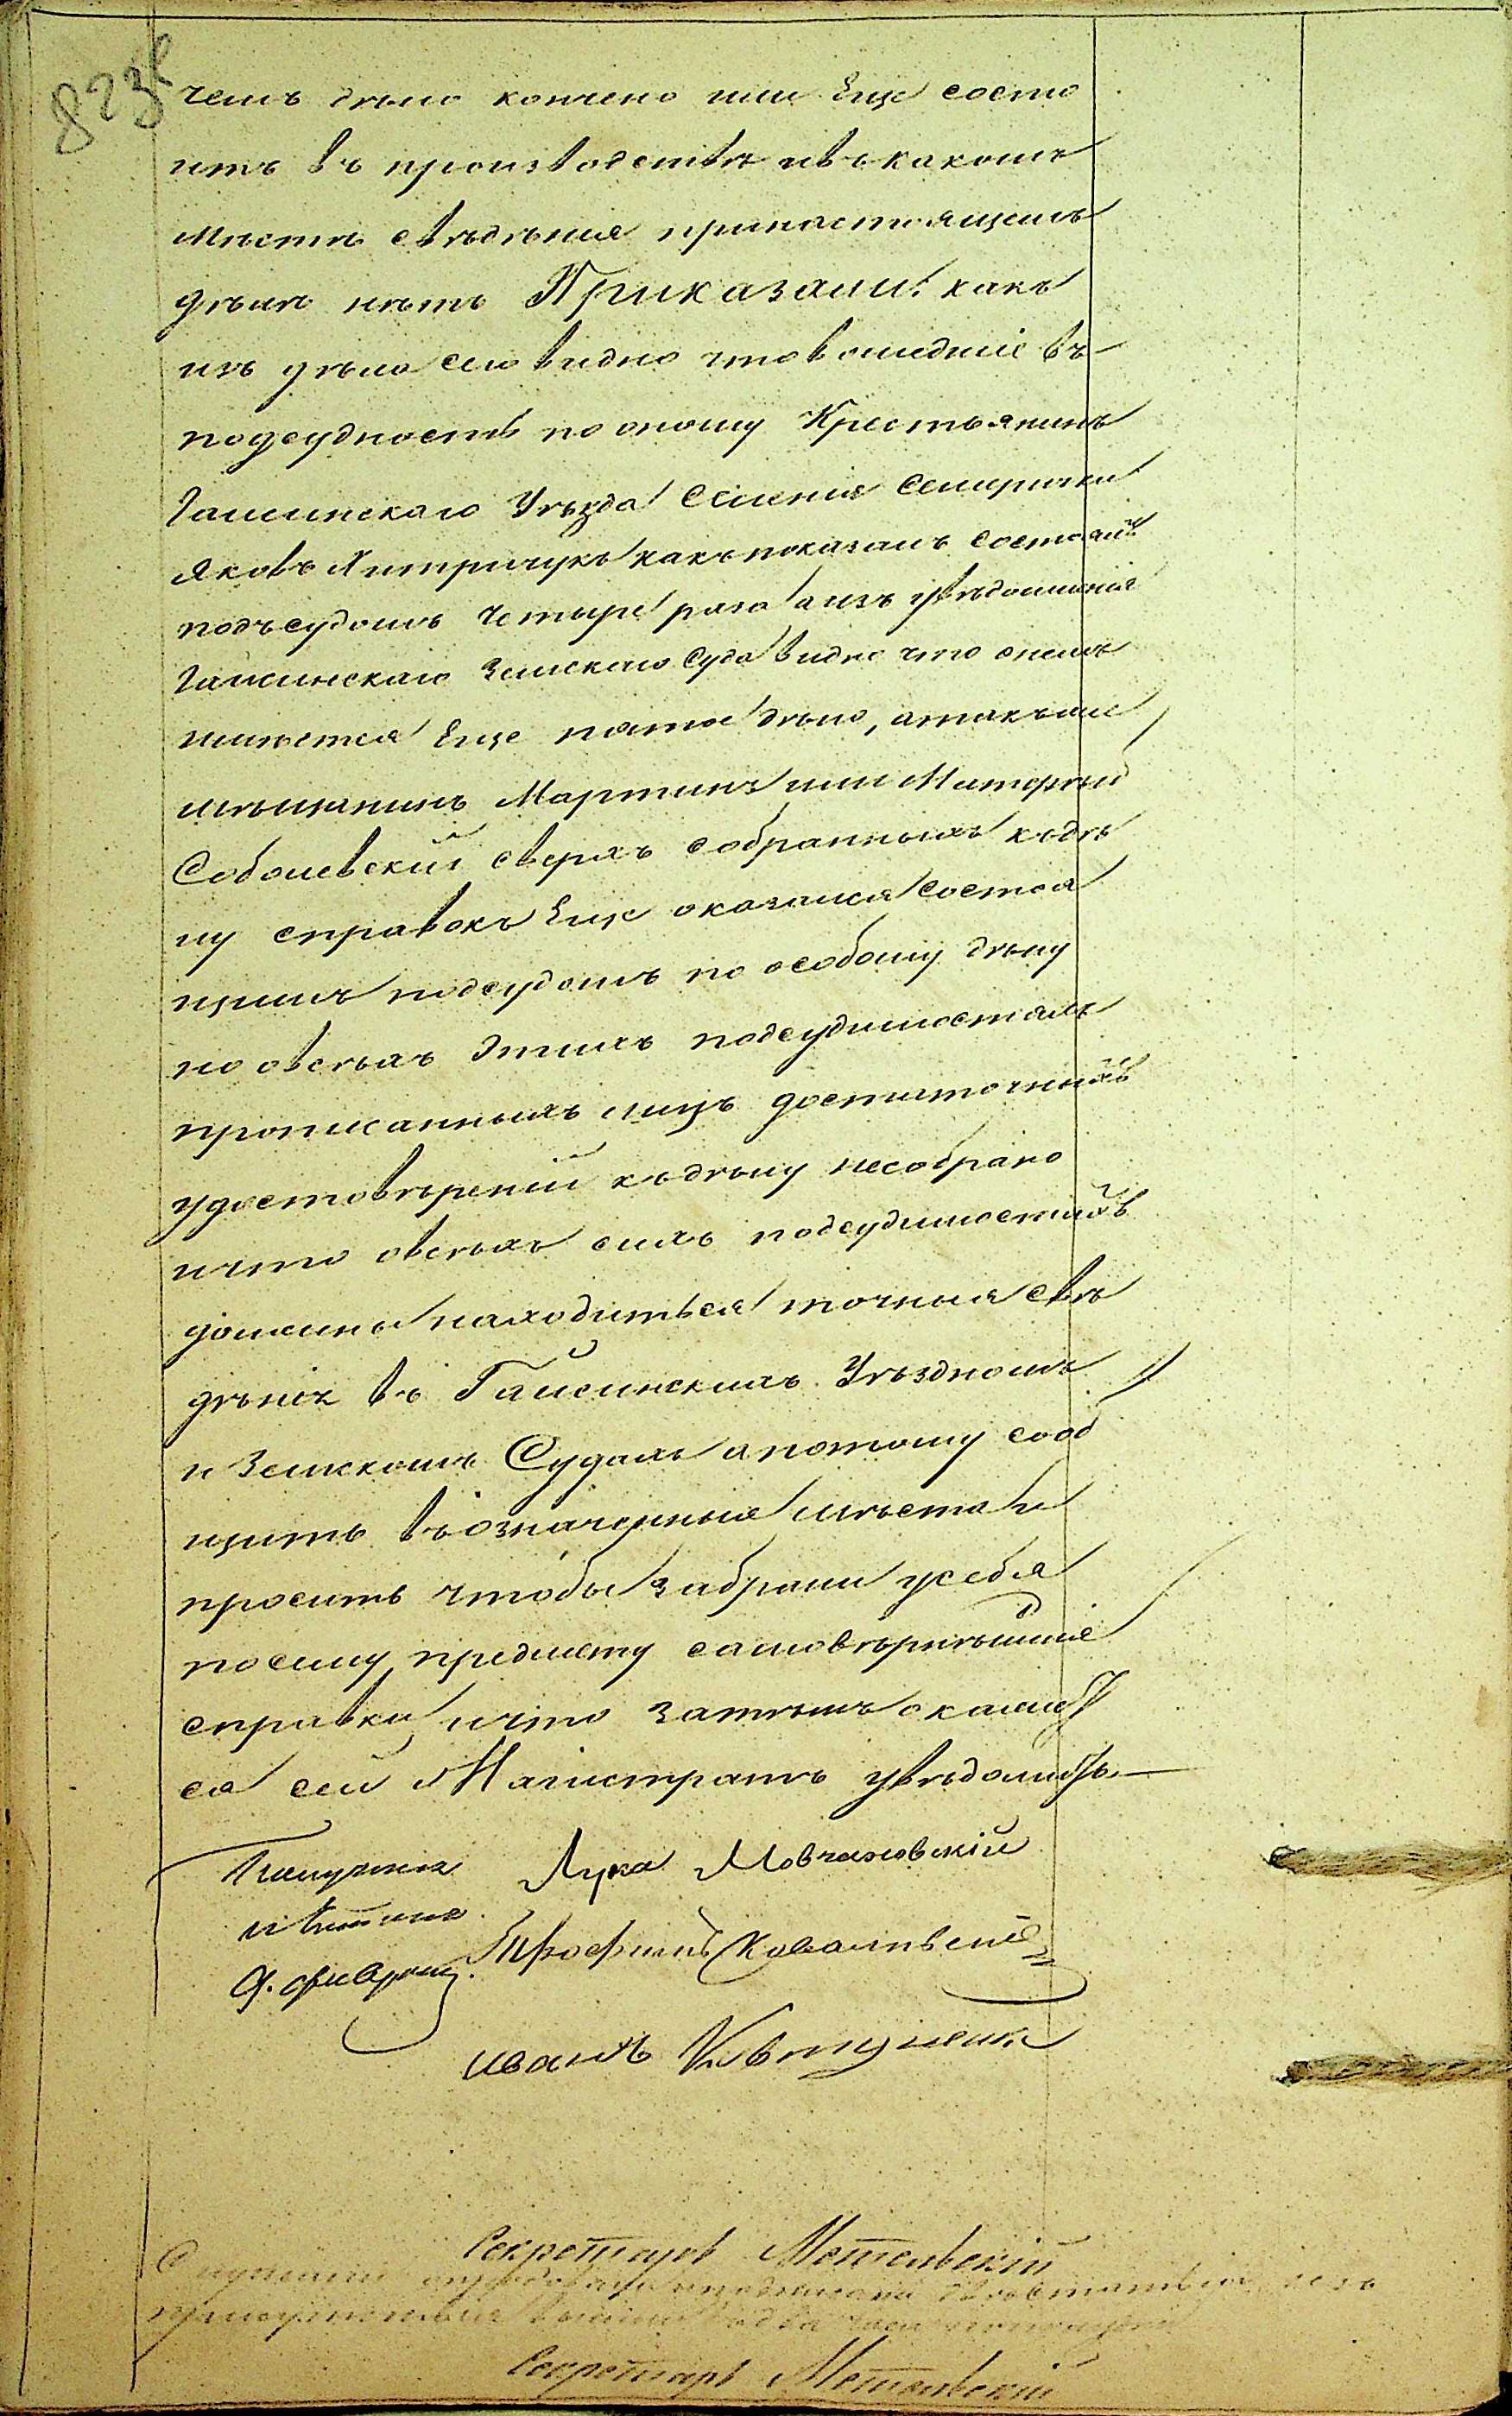 823
чемъ дѣло кончено или Еще состо
итъ въ производствѣ ивъ какомъ
мѣстѣ свѣдѣния принастоящемъ
дѣлѣ нѣтъ Приказали: какъ
изъ дѣла сего видно что вошедшіе въ
подсудность по оному Крестьянинъ
Гайсинскаго Уѣзда Селения Семиречки
Яковъ Дмитричукъ какъ показалъ состоялъ
подъ судомъ Четыре раза аизъ увѣдомленія
Гайсинскаго Земскаго Суда видно что онемъ
имѣется Еще пятое дѣло, атакъже
мѣщанинъ Мартинъ или Матфѣй
Соболевскій сверхъ собранныхъ кдѣ
лу справокъ Еще оказался состоя
щимъ подсудомъ по особому дѣлу
но овсѣхъ этихъ подсудимостяхъ
прописанныхъ лицъ достаточныхъ
удостовѣреній къдѣлу несобрано
ичто овсѣхъ сихъ подсудимостяхъ
должны находиться точныя свѣ
дѣнія въ Гайсинскихъ Уѣздномъ
и Земскомъ Судахъ апотому сооб
щить въозначенныя мѣста и
просить чтобы забрали усебя
посему предмету самовѣрнѣйшіе
справки ичто затѣмъ окажет
ся сей Магистратъ увѣдомить.
Лука Мовчановскій
Трофимъ Ковалевскій
иванъ Квитненко
Секретарь Метельскій
Секретарь Метельскій